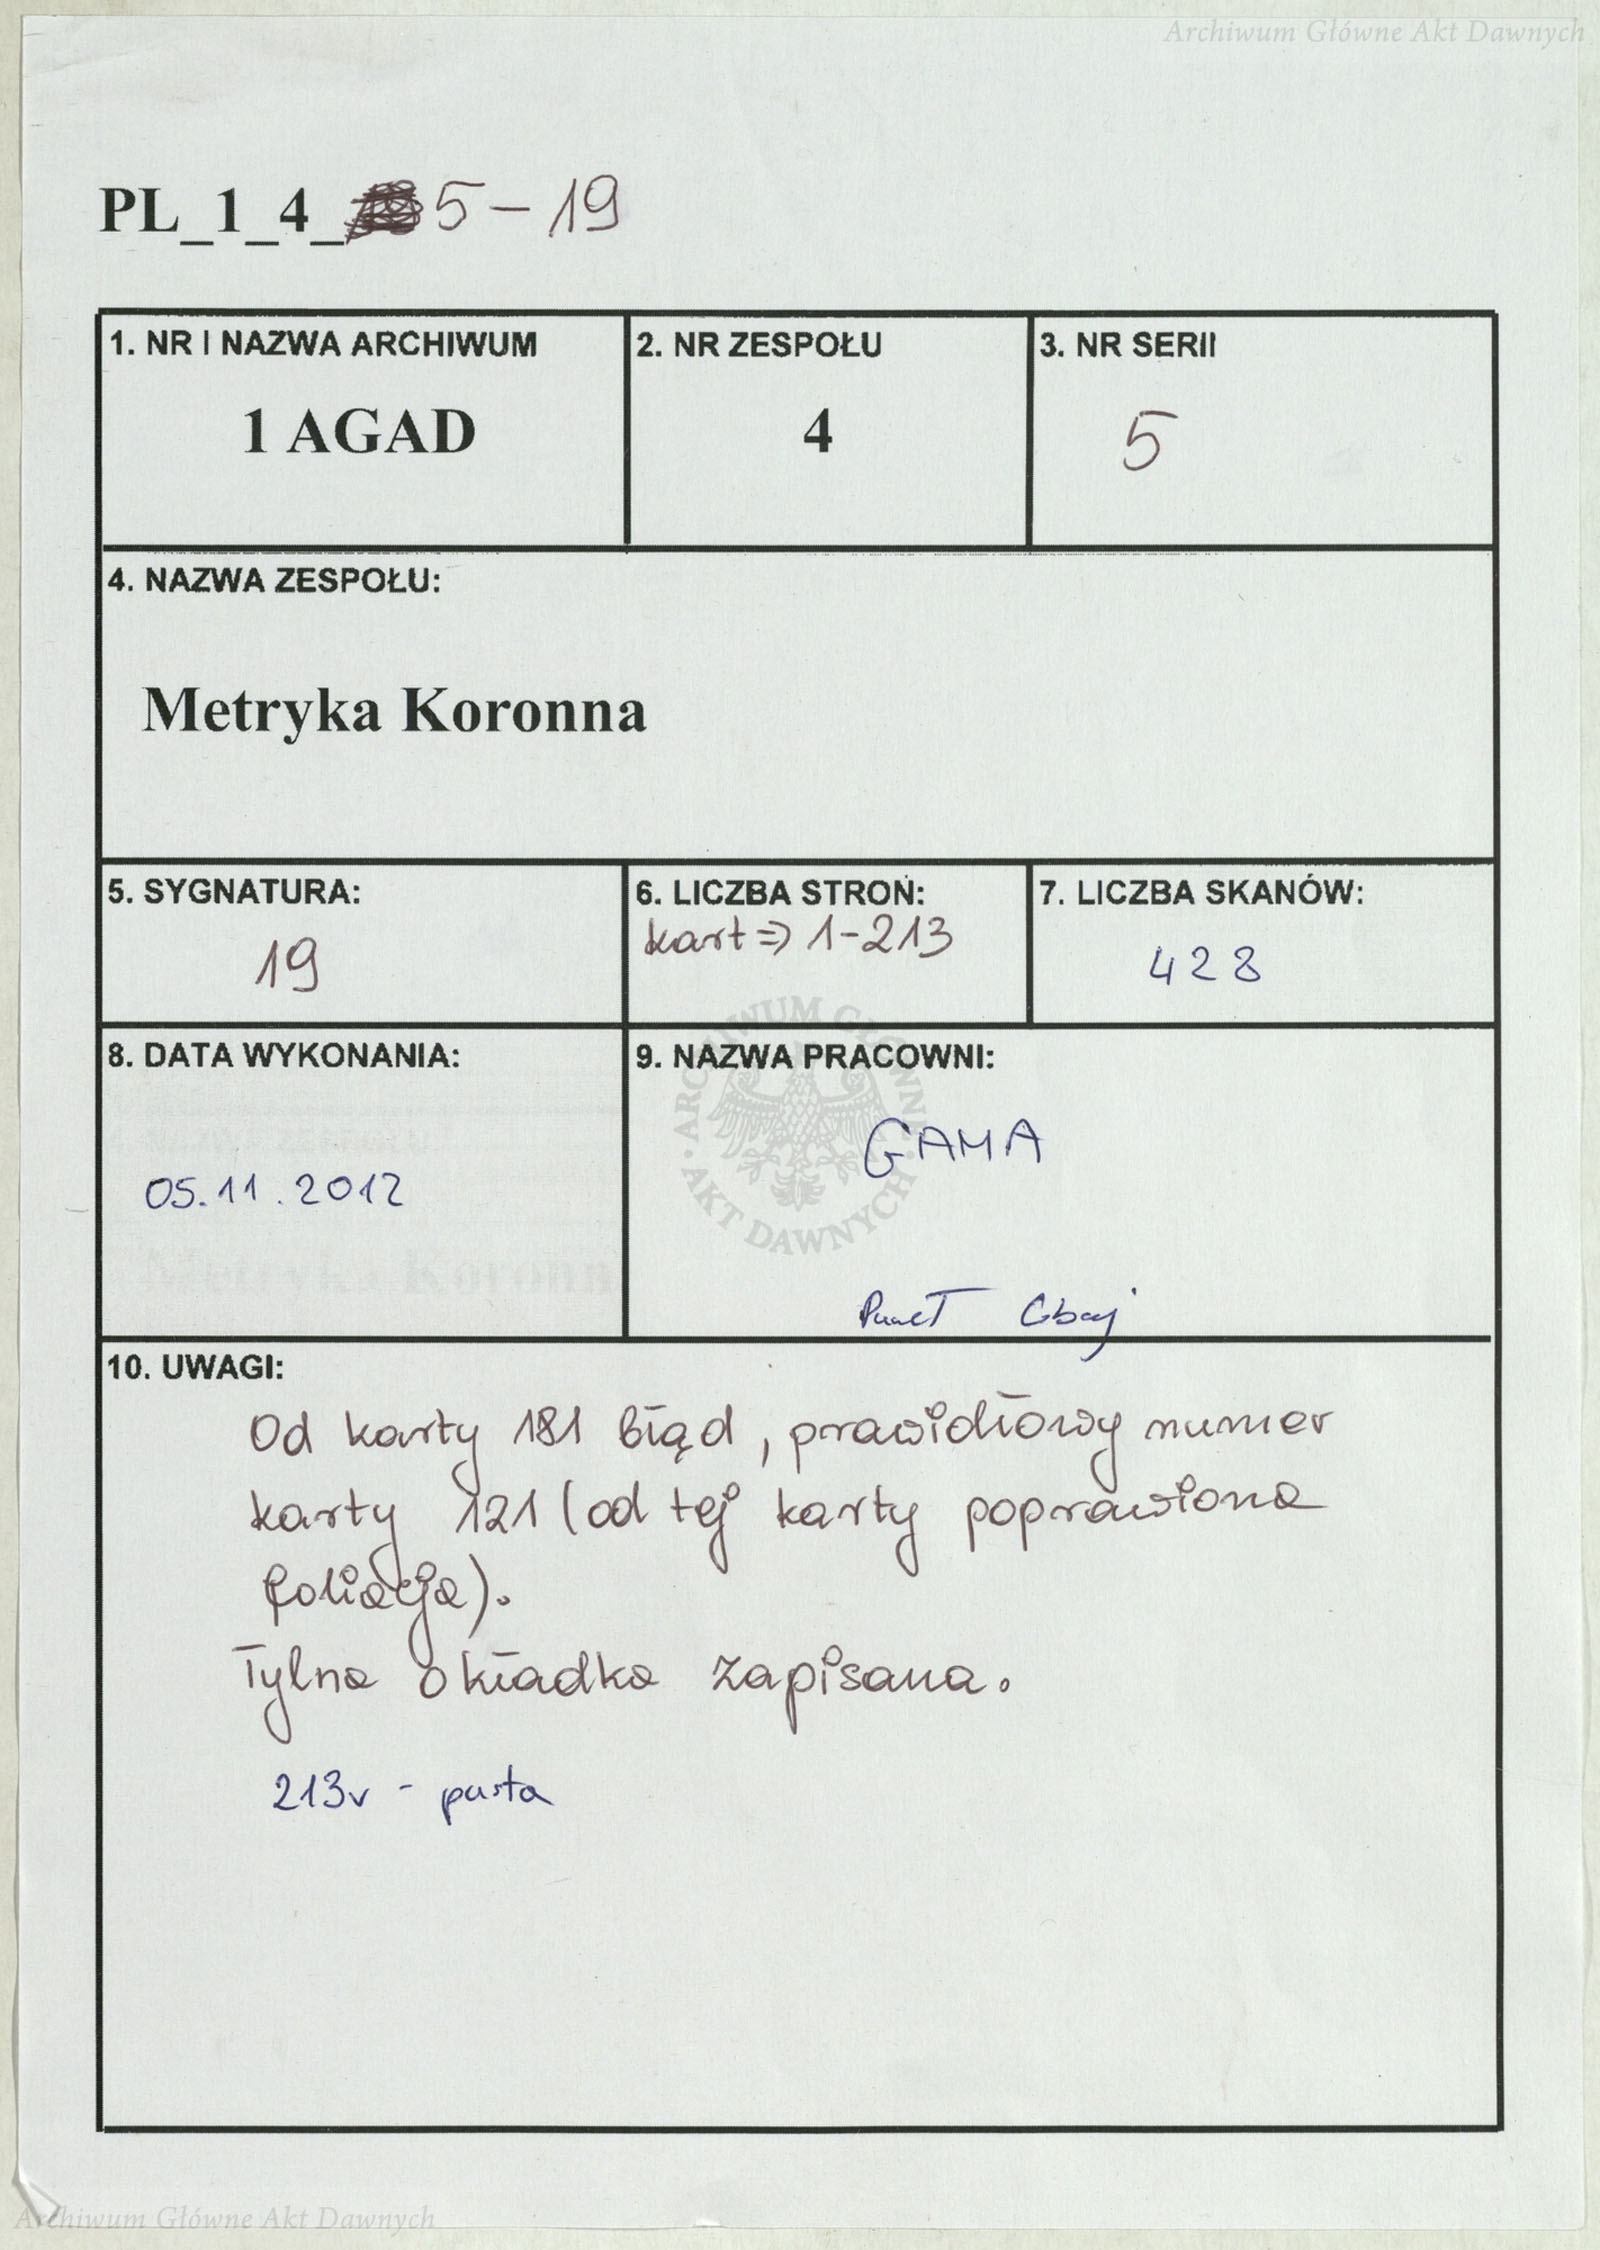 Archiwum Główne Akt Dawnych
PL_1_4_ 5 - 19
1. NR I NAZWA ARCHIWUM
1 AGAD
2. NR ZESPOŁU
4
3. NR SERII
5
4. NAZWA ZESPOŁU:
Metryka Koronna
5. SYGNATURA:
19
6. LICZBA STRON:
kart => 1-213
7. LICZBA SKANÓW:
428
8. DATA WYKONANIA:
05.11.2012
9. NAZWA PRACOWNI:
GAMA
Paweł
ARCHIWUM GŁÓWNE AKT DAWNYCH
10. UWAGI:
Od karty 181 błąd, prawidłowy numer
karty 121 (od tej karty poprawiona
foliacja).
Tylna okładka zapisana.
213v - pusta
Archiwum Główne Akt Dawnych